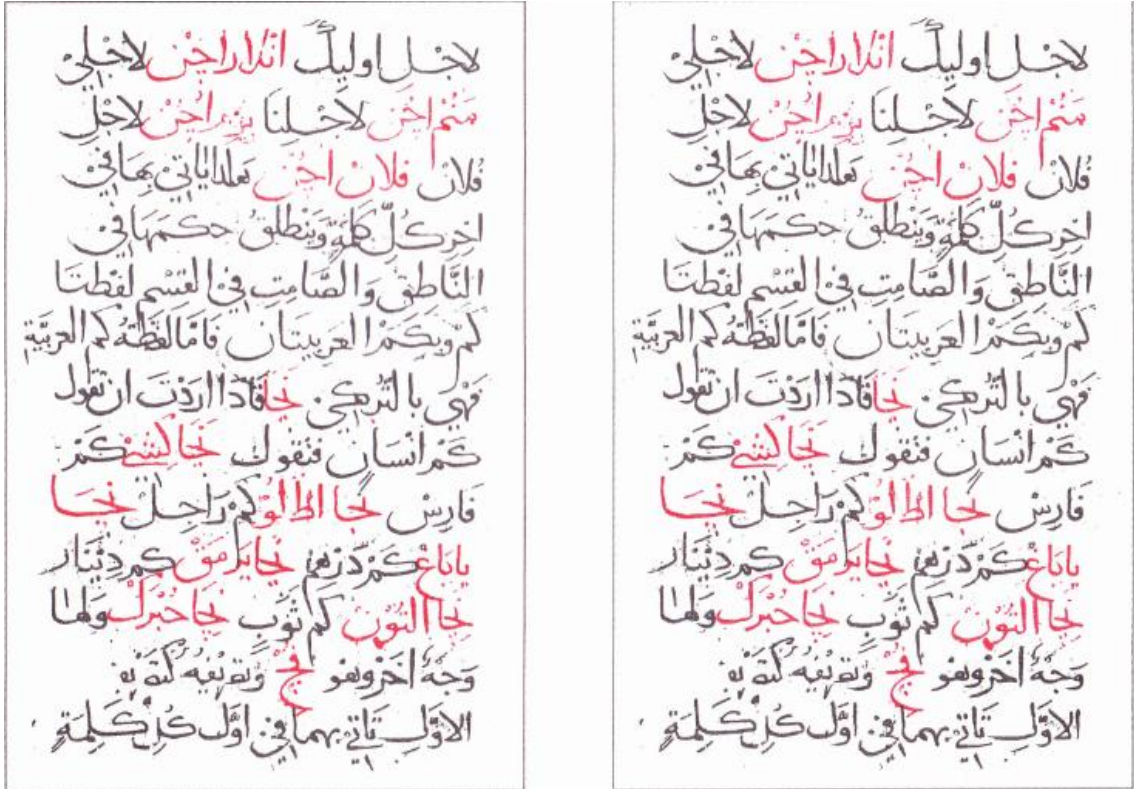 لاجْل اوليكَ انلار اجُن لاجْلي
اجُن لاجْلنَا بزم اجُن لاجْل
فُلان فلان اجُن ياتي بهَا في
اخِر كُلّ كلمَةٍ وَينْطلقُ حكمهَا في
النَّاطق وَالصَّامِت في القسْم لفْظتَا
كمْ وبكمْ العربيتان فامَّا لفظةُ كم العربيَّة
فهْي بالتُركي نجَا فاذا اردْتَ ان تقول
كمْ انْسَان فتقول نجَا كشي كمْ
فارسْ نجَا اطلوْ كمْ رَاجل نجَا
ياياغْ كمْ دَرْهم نجَا يرمَقْ كم دِيْنَار
نجَا التُوْن كم ثوْبٍ نجَا خُبْرَكْ ولها
وَجْهٌ اخَرْ وهو قجْ
الاوَّل تاتي بهما في اوَّل كُل كَلِمَةٍ
لاجْل اوليكَ انلار اجُن لاجْلي
اجُن لاجْلنَا بزم اجُن لاجْل
فُلان فلان اجُن ياتي بهَا في
اخِر كُلّ كلمَةٍ وَينْطلقُ حكمهَا في
النَّاطق وَالصَّامِت في القسْم لفْظتَا
كمْ وبكمْ العربيتان فامَّا لفظةُ كم العربيَّة
فهْي بالتُركي نجَا فاذا اردْتَ ان تقول
كمْ انْسَان فتقول نجَا كشي كمْ
فارسْ نجَا اطلوْ كمْ رَاجل نجَا
ياياغْ كمْ دَرْهم نجَا يرمَقْ كم دِيْنَار
نجَا التُوْن كم ثوْبٍ نجَا خُبْرَكْ ولها
وَجْهٌ اخَرْ وهو قجْ
الاوَّل تاتي بهما في اوَّل كُل كَلِمَةٍ